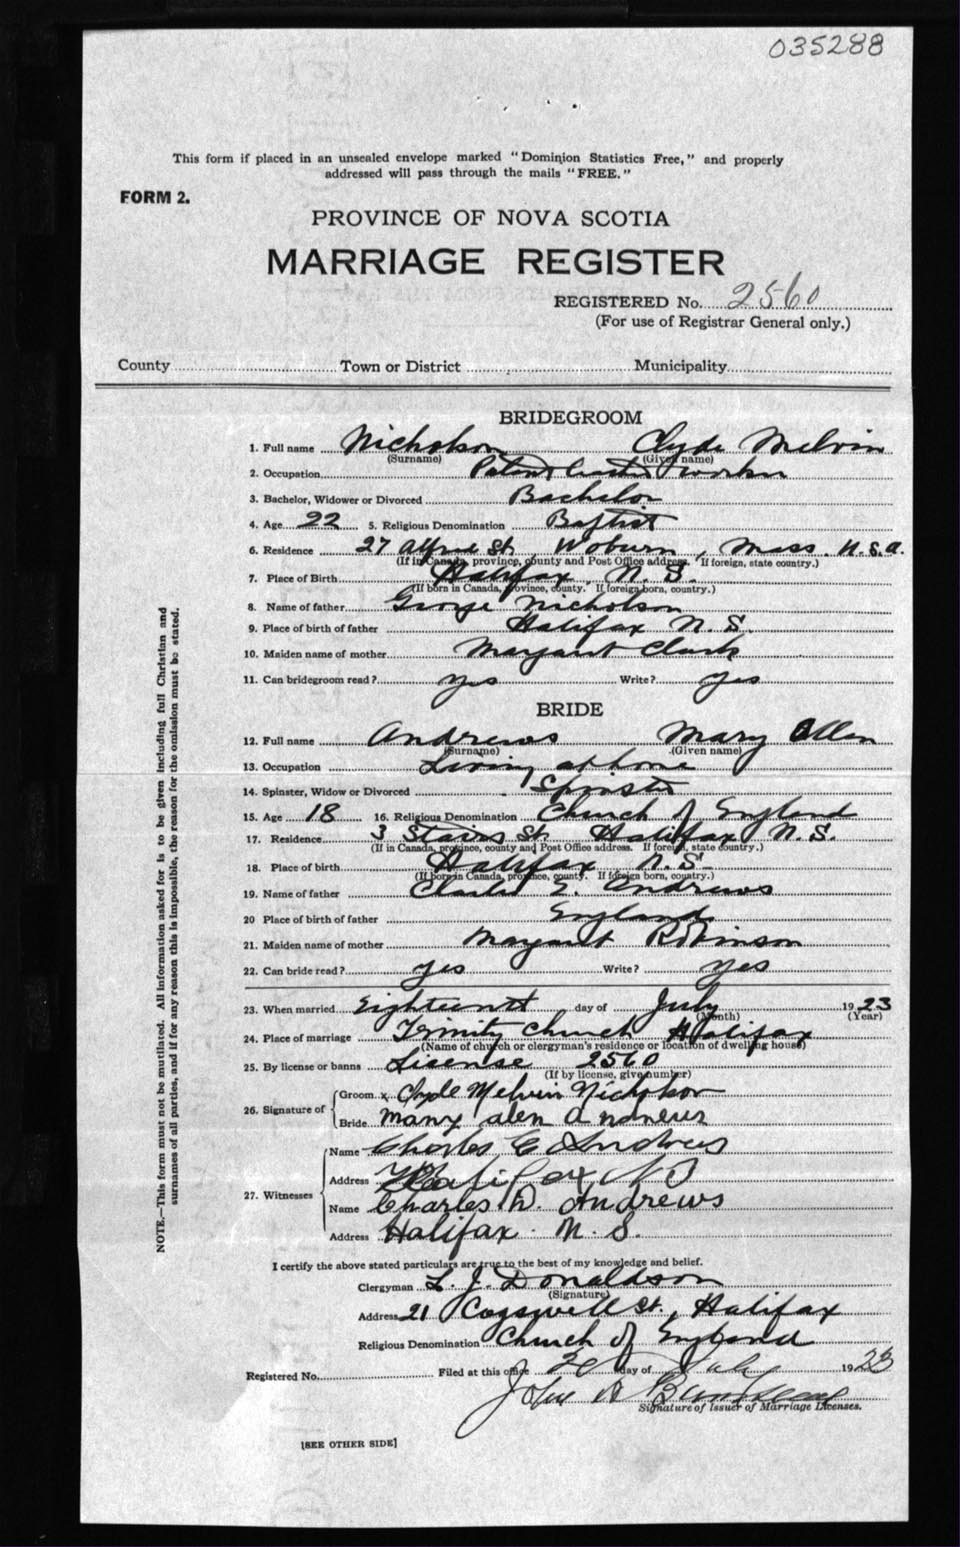 035288
This form if placed in an unsealed envelope marked "Dominion Statistics Free," and properly
addressed will pass through the mails "FREE."
FORM 2.
PROVINCE OF NOVA SCOTIA
MARRIAGE REGISTER
REGISTERED No. 2560
(For use of Registrar General only.)
County Town or District Municipality
BRIDEGROOM
1. Full name Nicholson Clyde Melvin
(Surname) (Given name)
2. Occupation Patent Leather worker
3. Bachelor, Widower or Divorced Bachelor
4. Age 22 5. Religious Denomination Baptist
6. Residence 27 Alfred St., Woburn, Mass. U.S.A.
(If in Canada, province, county and Post Office address. If foreign, state country.)
7. Place of Birth Halifax, N.S.
(If born in Canada, province, county. If foreign born, country.)
8. Name of father George Nicholson
9. Place of birth of father Halifax N.S.
10. Maiden name of mother Margaret Clark
11. Can bridegroom read? yes Write? yes
BRIDE
12. Full name Andrews Mary Ellen
(Surname) (Given name)
13. Occupation Living at home
14. Spinster, Widow or Divorced Spinster
15. Age 18 16. Religious Denomination Church of England
17. Residence 3 Stairs St. Halifax N.S.
(If in Canada, province, county and Post Office address. If foreign, state country.)
18. Place of birth Halifax N.S.
(If born in Canada, province, county. If foreign born, country.)
19. Name of father Charles E. Andrews
20 Place of birth of father England
21. Maiden name of mother Margaret Robinson
22. Can bride read? yes Write? yes
23. When married Eighteenth day of July 1923
(Month) (Year)
24. Place of marriage Trinity Church Halifax
(Name of church or clergyman's residence or location of dwelling house)
25. By license or banns License 2560
(If by license, give number)
26. Signature of Groom x Clyde Melvin Nicholson
Bride Mary alen Andrews
27. Witnesses Name Charles E Andrews
Address Halifax NS
Name Charles D. Andrews
Address Halifax. N.S.
I certify the above stated particulars are true to the best of my knowledge and belief.
Clergyman L. J. Donaldson
(Signature)
Address 21 Cogswell St., Halifax
Religious Denomination Church of England
Registered No. Filed at this office 20 day of July 1923
John
Signature of Issuer of Marriage Licenses.
[SEE OTHER SIDE]
NOTE.—This form must not be mutilated. All information asked for is to be given including full Christian and
surnames of all parties, and if for any reason this is impossible, the reason for the omission must be stated.